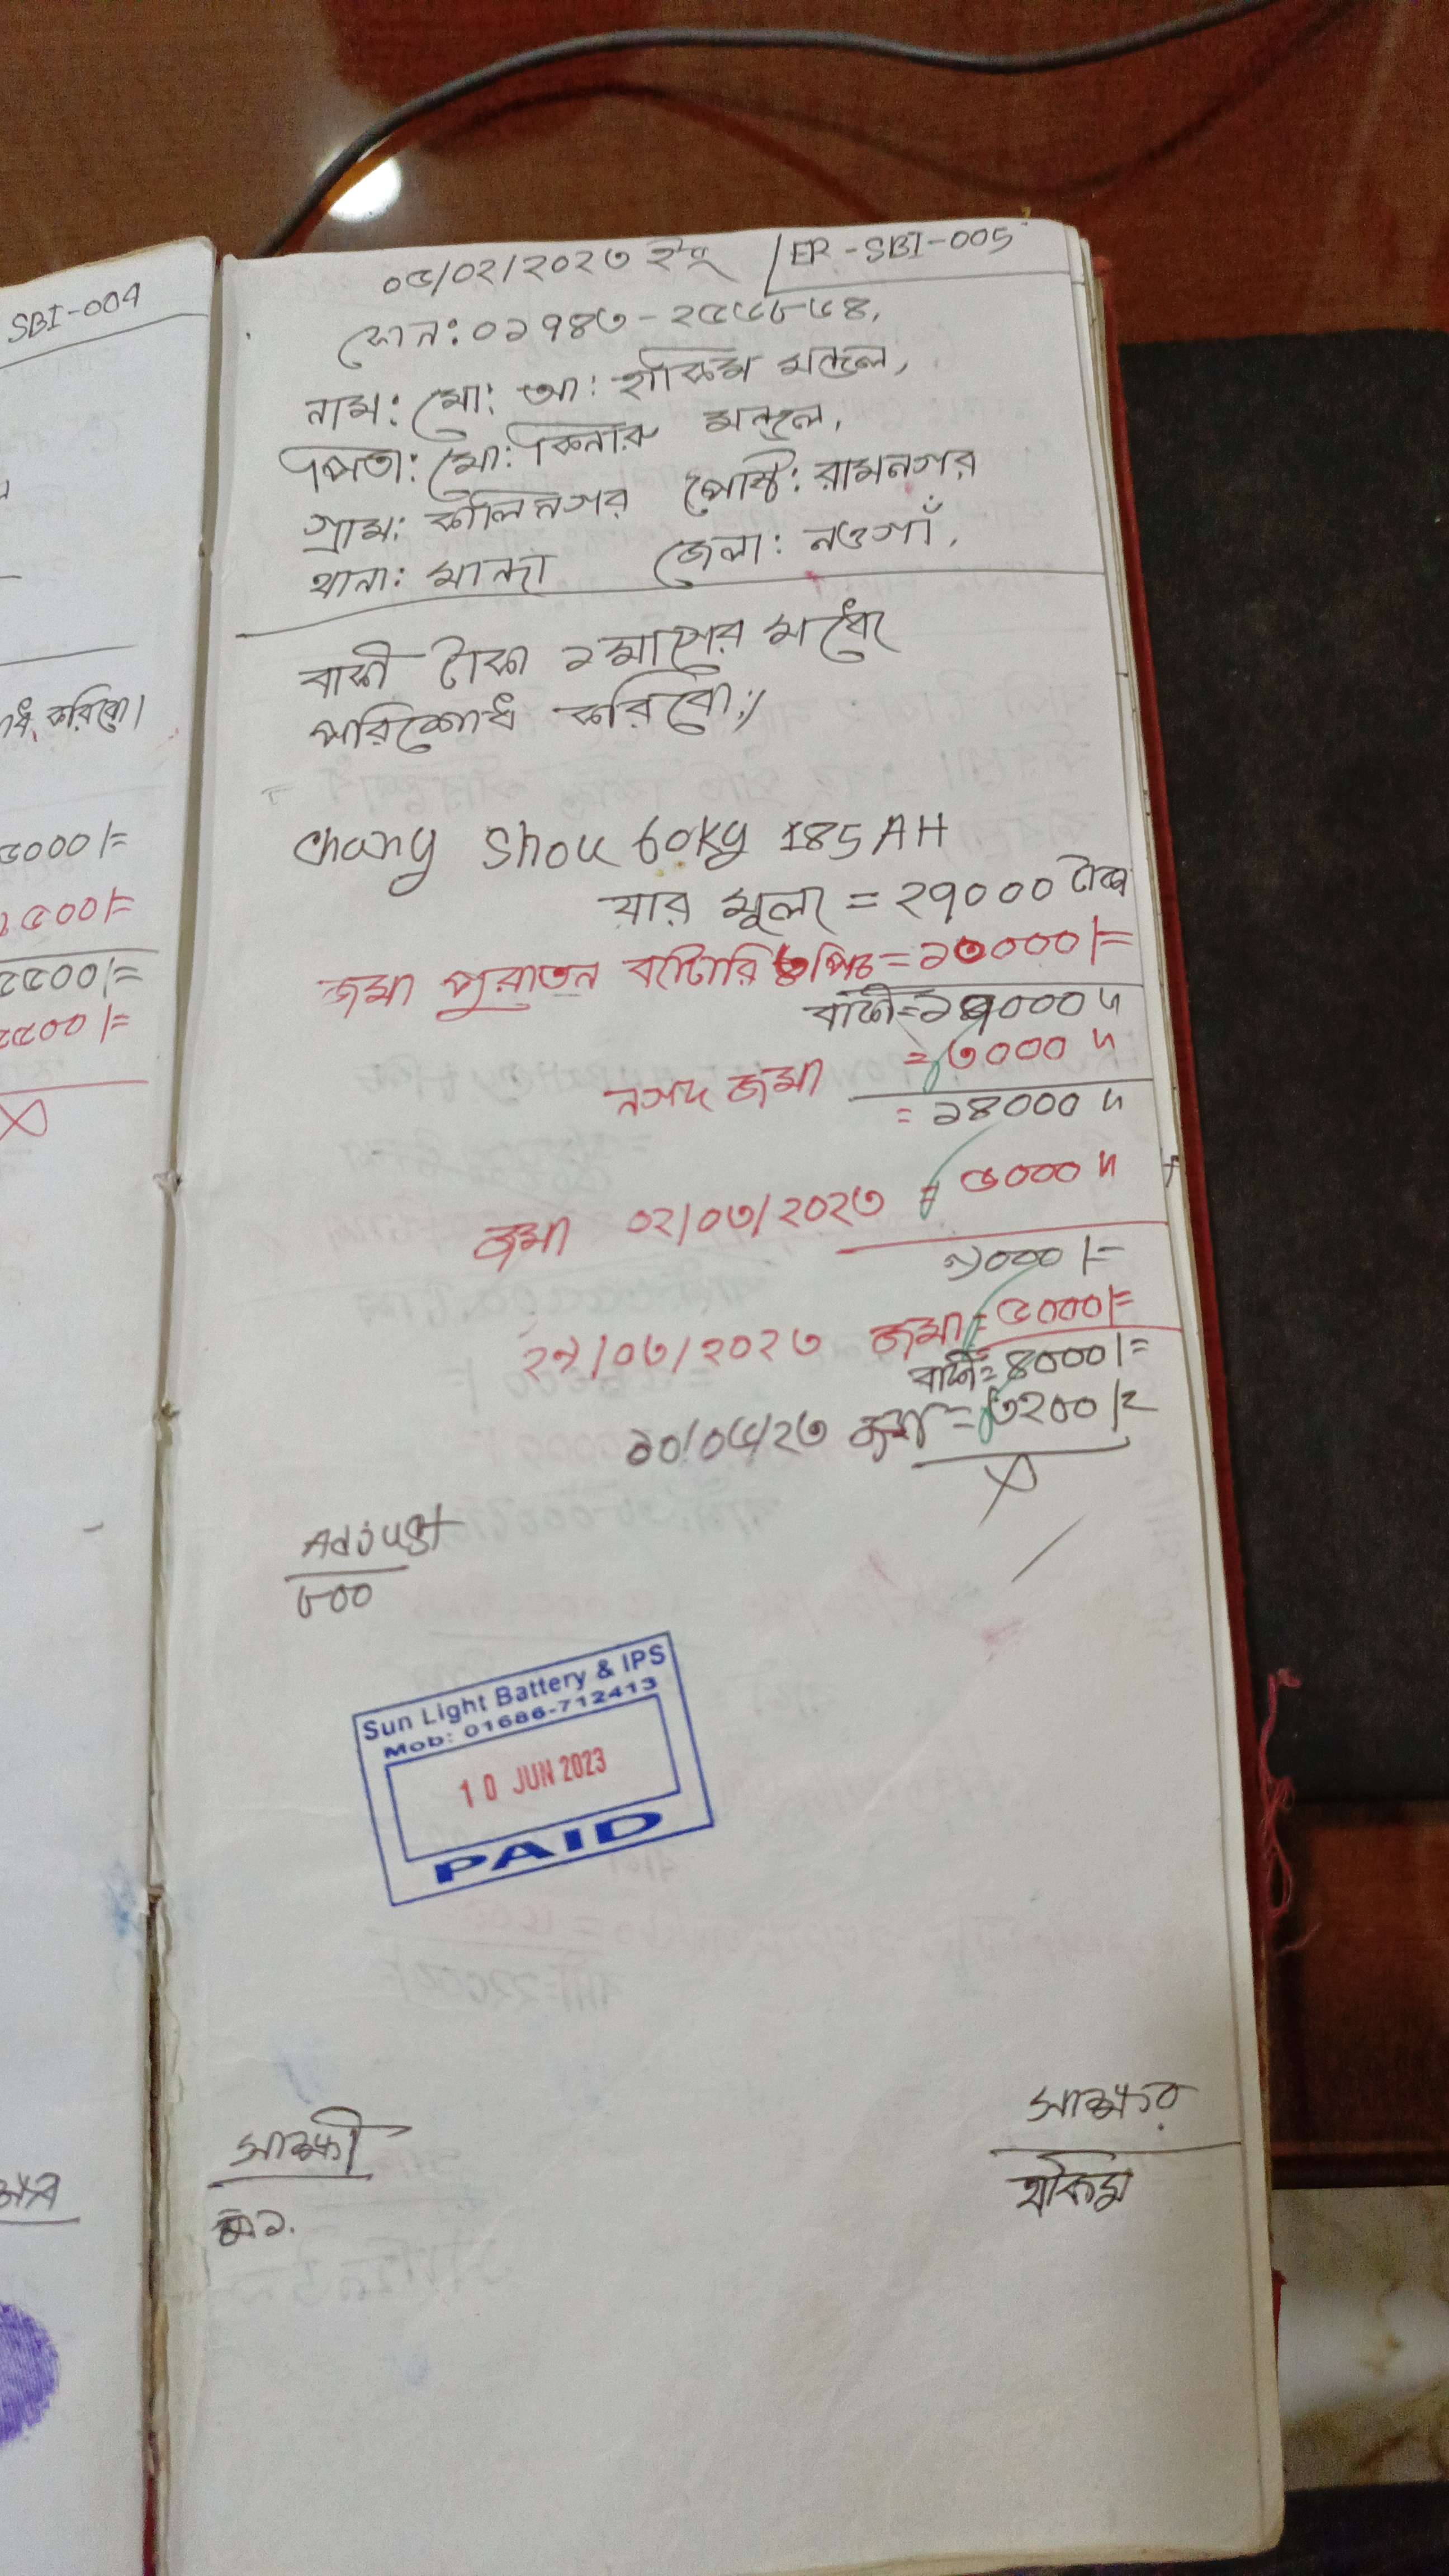 SBI-004
০৫/০২/২০২৩ ইং
ER-SBI-005
ফোন: ০১৭৪৩-২৫৫৮৬৪,
নাম: মো: আ: হাকিম মন্ডল,
পিতা: মো: কিনারু মন্ডল,
গ্রাম: কালিনগর পোষ্ট: রামনগর
থানা: মান্দা জেলা: নওগাঁ,
বাকী টাকা ২মাসের মধ্যে
পরিশোধ করিবো;/
করিবো।
Chang Shou 60kg 185AH
যার মূল্য = ২৭০০০ টাকা
জমা পুরাতন ব্যাটারি পিচ = ১০০০০/=
বাকী = ১৭০০০ ৸
নগদ জমা = ৩০০০ ৸
= ১৪০০০ ৸
জমা ০২/০৩/২০২৩ = ৫০০০ ৸
৯০০০/=
২৯/০৩/২০২৩ জমা = ৫০০০/=
বাকী = ৪০০০/=
১০/০৬/২৩ জমা = ৩২০০/=
Adjust
৮০০
Sun Light Battery & IPS
Mob: 01686-712413
10 JUN 2023
PAID
সাক্ষী
১.
সাক্ষর
হাকিম